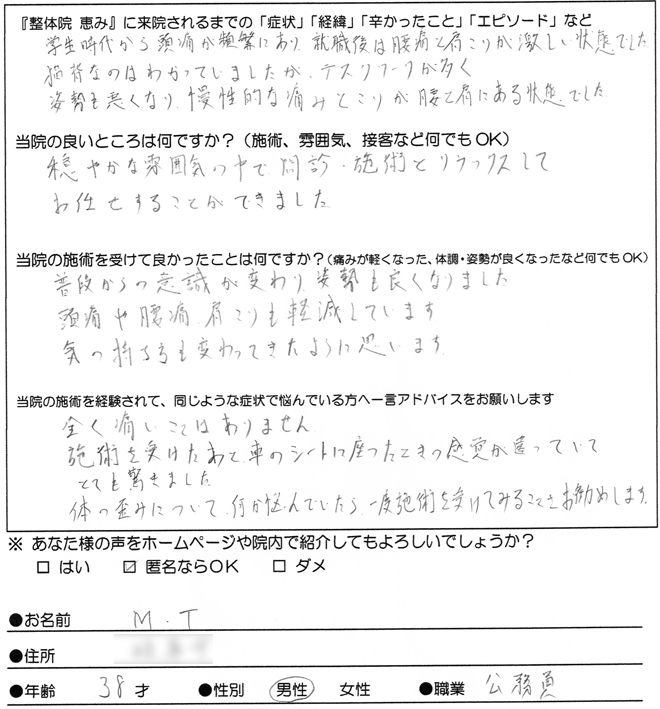 『整体院 恵み』に来院されるまでの「症状」「経緯」「辛かったこと」「エピソード」など
学生時代から頭痛が頻繁にあり、就職後は腰痛と肩こりが激しい状態でした
猫背なのはわかっていましたが、デスクワークが多く
姿勢も悪くなり、慢性的な痛みとこりが腰と肩にある状態でした
当院の良いところは何ですか？（施術、雰囲気、接客など何でもOK）
穏やかな雰囲気の中で、問診・施術とリラックスして
お任せすることができました
当院の施術を受けて良かったことは何ですか？（痛みが軽くなった、体調・姿勢が良くなったなど何でもOK）
普段からの意識が変わり、姿勢も良くなりました
頭痛や腰痛、肩こりも軽減しています
気の持ち方も変わってきたように思います。
当院の施術を経験されて、同じような症状で悩んでいる方へ一言アドバイスをお願いします
全く痛いことはありません
施術を受けたあと、車のシートに座ったときの感覚が違っていて
とても驚きました
体の歪みについて、何か悩んでいたら、一度施術を受けてみることをお勧めします。
※ あなた様の声をホームページや院内で紹介してもよろしいでしょうか？
□ はい ☑ 匿名ならOK □ ダメ
●お名前 M.T
●住所
●年齢 38 才 ●性別 男性 女性 ●職業 公務員